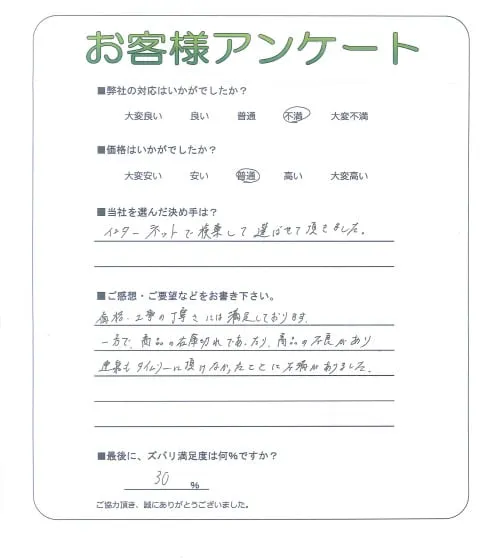 お客様アンケート
■弊社の対応はいかがでしたか？
大変良い 良い 普通 不満 大変不満
■価格はいかがでしたか？
大変安い 安い 普通 高い 大変高い
■当社を選んだ決め手は？
インターネットで検索して選ばせて頂きました。
■ご感想・ご要望などをお書き下さい。
価格、工事の丁寧さには満足しております。
一方で、商品の在庫切れであったり、商品の不良があり
連絡もタイムリーに頂けなかったことに不満がありました。
■最後に、ズバリ満足度は何％ですか？
30 ％
ご協力頂き、誠にありがとうございました。